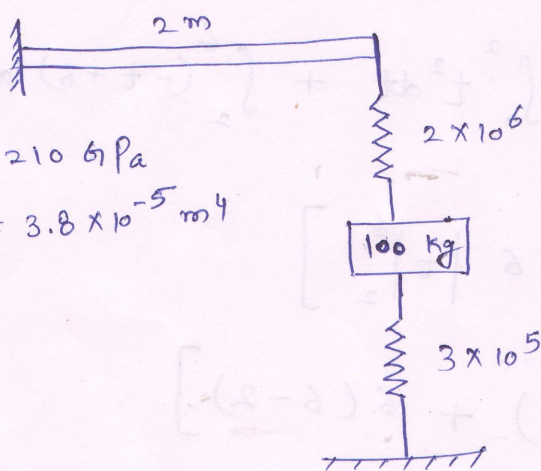 2 m
210 GPa
= 3.8 × 10⁻⁵ m⁴
2 × 10⁶
100 kg
3 × 10⁵